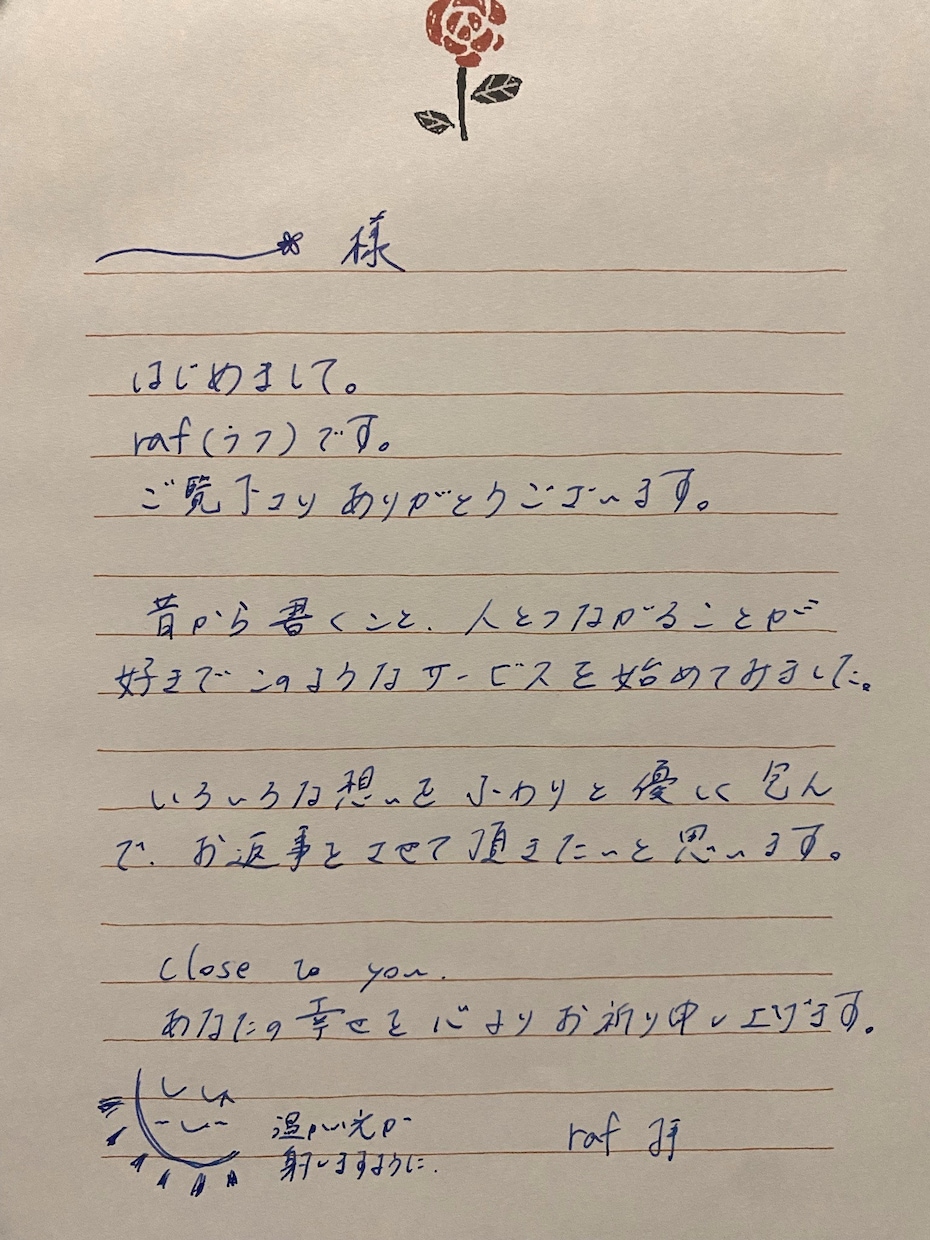 様
はじめまして。
raf(ラフ)です。
ご覧下さりありがとうございます。
昔から書くこと、人とつながることが
好きでこのようなサービスを始めてみました。
いろいろな想いをふわりと優しく包ん
で、お返事をさせて頂きたいと思います。
close to you.
あなたの幸せを心よりお祈り申し上げます。
温かい光が
射しますように.
raf 拝